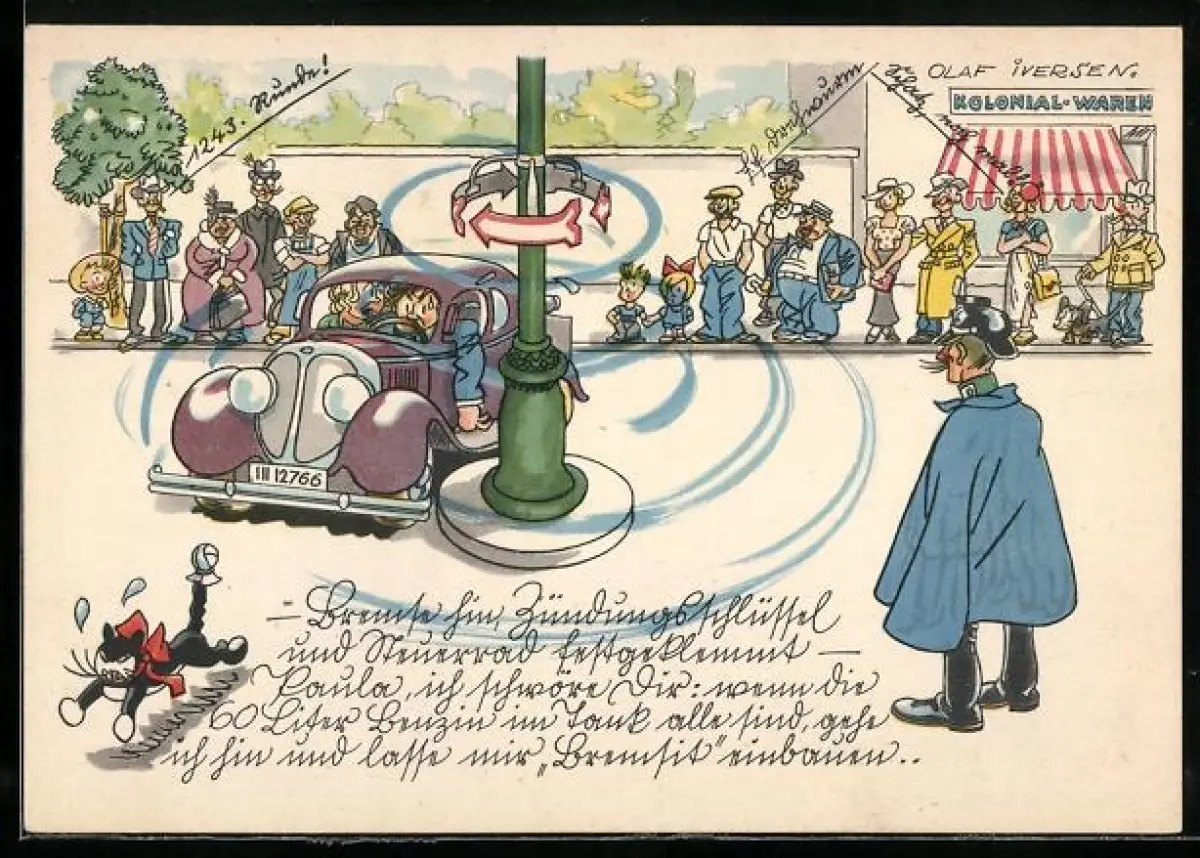 1243. Runde!
OLAF iVERSEN.
KOLONIAL-WAREN
III 12766
– Bremse hin, Zündungsschlüssel
und Steuerrad festgeklemmt –
Paula, ich schwöre Dir: wenn die
60 Liter Benzin im Tank alle sind, gehe
ich hin und lasse mir „Bremsit“ einbauen..